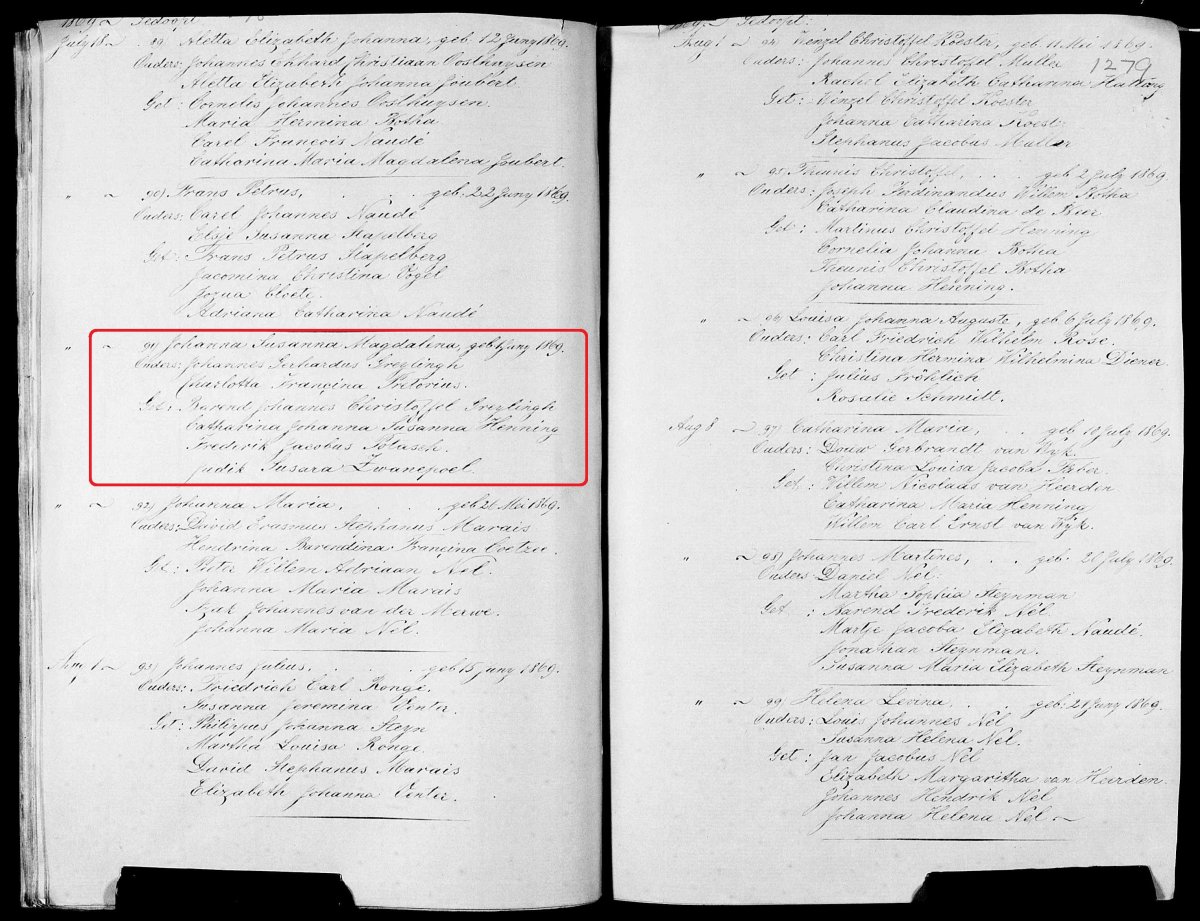 1869 Gedoopt
July 18 ~ 89) Aletta Elizabeth Johanna, geb. 12 Juny 1869.
Ouders: Johannes Christiaan Oosthuysen
Aletta Elizabeth Johanna Joubert.
Get: Cornelis Johannes Oosthuysen.
Maria Hermina Botha
Carel Francois Naudé
Catharina Maria Magdalena Joubert.
" ~ 90) Frans Petrus, . . geb. 22 Juny 1869.
Ouders: Carel Johannes Naudé
Elsje Susanna Stapelberg
Get: Frans Petrus Stapelberg
Jacomina Christina Vogel
Jozua Cloete.
Adriana Catharina Naudé
" ~ 91) Johanna Susanna Magdalena, geb 1 Juny 1869.
Ouders: Johannes Gerhardus Greylingh
Charlotta Francina Pretorius.
Get: Barend Johannes Christoffel Greylingh
Catharina Johanna Susanna Henning
Frederik Jacobus
Judik Susara Zwanepoel.
" ~ 92) Johanna Maria, . . geb 21 Mei 1869.
Ouders: David Erasmus Stephanus Marais
Hendrina Barendina Francina Coetzee.
Get: Pieter Willem Adriaan Nel.
Johanna Maria Marais
Izak Johannes van der Merwe.
Johanna Maria Nel.
Aug 1 ~ 93) Johannes Julius. . . . geb 15 Juny 1869.
Ouders: Friedrich Carl Ronge.
Susanna Jeremina Venter.
Get: Philippus Johanna Steyn
Martha Louisa Ronge.
David Stephanus Marais
Elizabeth Johanna Venter.
1869. Gedoopt:
Aug 1 ~ 94) Wenzel Christoffel Koester, geb. 11 Mei 1869.
1279
Ouders: Johannes Christoffel Muller
Rachel Elizabeth Catharina Hattingh
Get: Wenzel Christoffel Koester
Johanna Catharina Koest
Stephanus Jacobus Muller
" ~ 95) Theunis Christoffel, . . . geb 2 July 1869.
Ouders: Joseph Ferdinandus Willem Botha
Catharina Claudina de Beer
Get: Martinus Christoffel Henning
Cornelia Johanna Botha
Theunis Christoffel Botha
Johanna Henning.
" ~ 96) Louisa Johanna Auguste, geb. 6 July 1869.
Ouders: Carl Friedrich Wilhelm Rose.
Christina Hermina Wilhelmina Diener.
Get: Julius Fröhlich
Rosalie Schmidt.
Aug 8 ~ 97) Catharina Maria, . . geb 10 July 1869.
Ouders: Douw Gerbrandt van Wyk.
Christina Louisa Jacoba Faber.
Get: Willem Nicolaas van Heerden
Catharina Maria Henning
Willem Carl Ernst van Wyk.
" ~ 98) Johannes Martines, . . geb. 20 July 1869.
Ouders: Daniel Nel.
Martha Sophia Steynman
Get: Barend Frederik Nel
Martje Jacoba Elizabeth Naudé.
Jonathan Steynman.
Susanna Maria Elizabeth Steynman
" ~ 99) Helena Levina, . . geb. 21 Juny 1869.
Ouders: Louis Johannes Nel
Susanna Helena Nel.
Get: Jan Jacobus Nel
Elizabeth Margaritha van Heerden
Johannes Hendrik Nel
Johanna Helena Nel ~